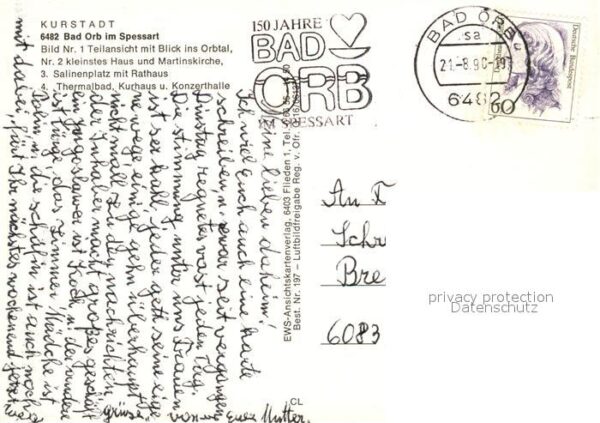 KURSTADT
6482 Bad Orb im Spessart
Bild Nr. 1 Teilansicht mit Blick ins Orbtal,
Nr. 2 kleinstes Haus und Martinskirche,
3. Salinenplatz mit Rathaus
4. Thermalbad, Kurhaus u. Konzerthalle
150 JAHRE
BAD
ORB
IM SPESSART
BAD ORB
sa
21.-8.90-19
6482
Deutsche Bundespost
60
EWS-Ansichtskartenverlag, 6403 Flieden 1, Tel.
Best. Nr. 197 – Luftbildfreigabe Reg. v. Ofr.
CL
Meine lieben daheim!
Ich will Euch auch eine Karte
schreiben u. zwar seit vergangen
Dinstag regnet es fast jeden Tag.
Die Stimmung unter uns Frauen
ist seer kall, jeder geth seine eige
ne wege einige gehn überhaupt
nicht mall zu den nachrichten,
der Inhaber macht großes geschäft
ein Jugoslawer ist Koch u. der andere
ist das Zimmer Mädche ist
die ist auch noch
mit dabei, Ihr nächstes wochenend jetzt
grüse von Euer Mutter.
An
Schr
Bre
6083
privacy protection
Datenschutz